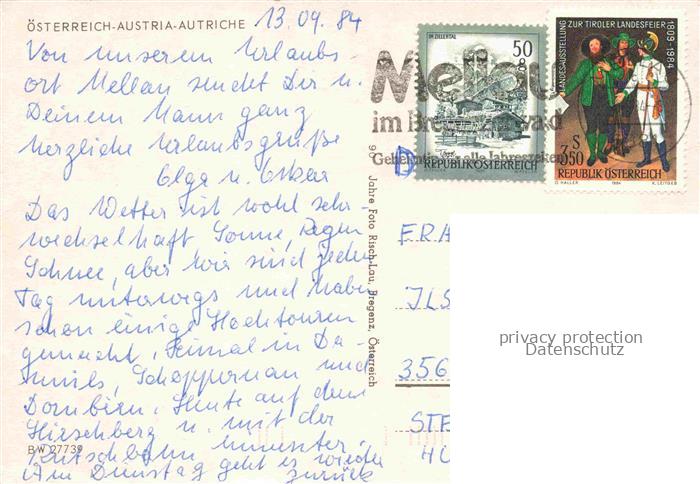 ÖSTERREICH-AUSTRIA-AUTRICHE
13.09.84
Von unserem Urlaubs
ort Mellau sendet Dir u.
Deinem Mann ganz
herzliche Urlaubsgrüße
Olga u. Oskar
Das Wetter ist wohl sehr
wechselhaft Sonne, Regen
Schnee, aber wir sind jeden
Tag unterwegs und haben
schon einige Hochtouren
gemacht, Einmal in Da-
müls, Schoppernau und
Dornbirn. Heute auf dem
Hirschberg u. mit der
hinunter.
Am Dienstag geht es wieder
zurück
BW 27739
90 Jahre Foto Risch-Lau, Bregenz, Österreich
IM ZILLERTAL
50
REPUBLIK ÖSTERREICH
LANDESAUSSTELLUNG ZUR TIROLER LANDESFEIER 1809-1984
S
3.50
REPUBLIK ÖSTERREICH
O. HALLER 1984 K. LEITGEB
Mellau
im Bregenzerwald
Geheimtip für alle Jahreszeiten
D
FRA
ILS
356
STE
HÜ
privacy protection
Datenschutz